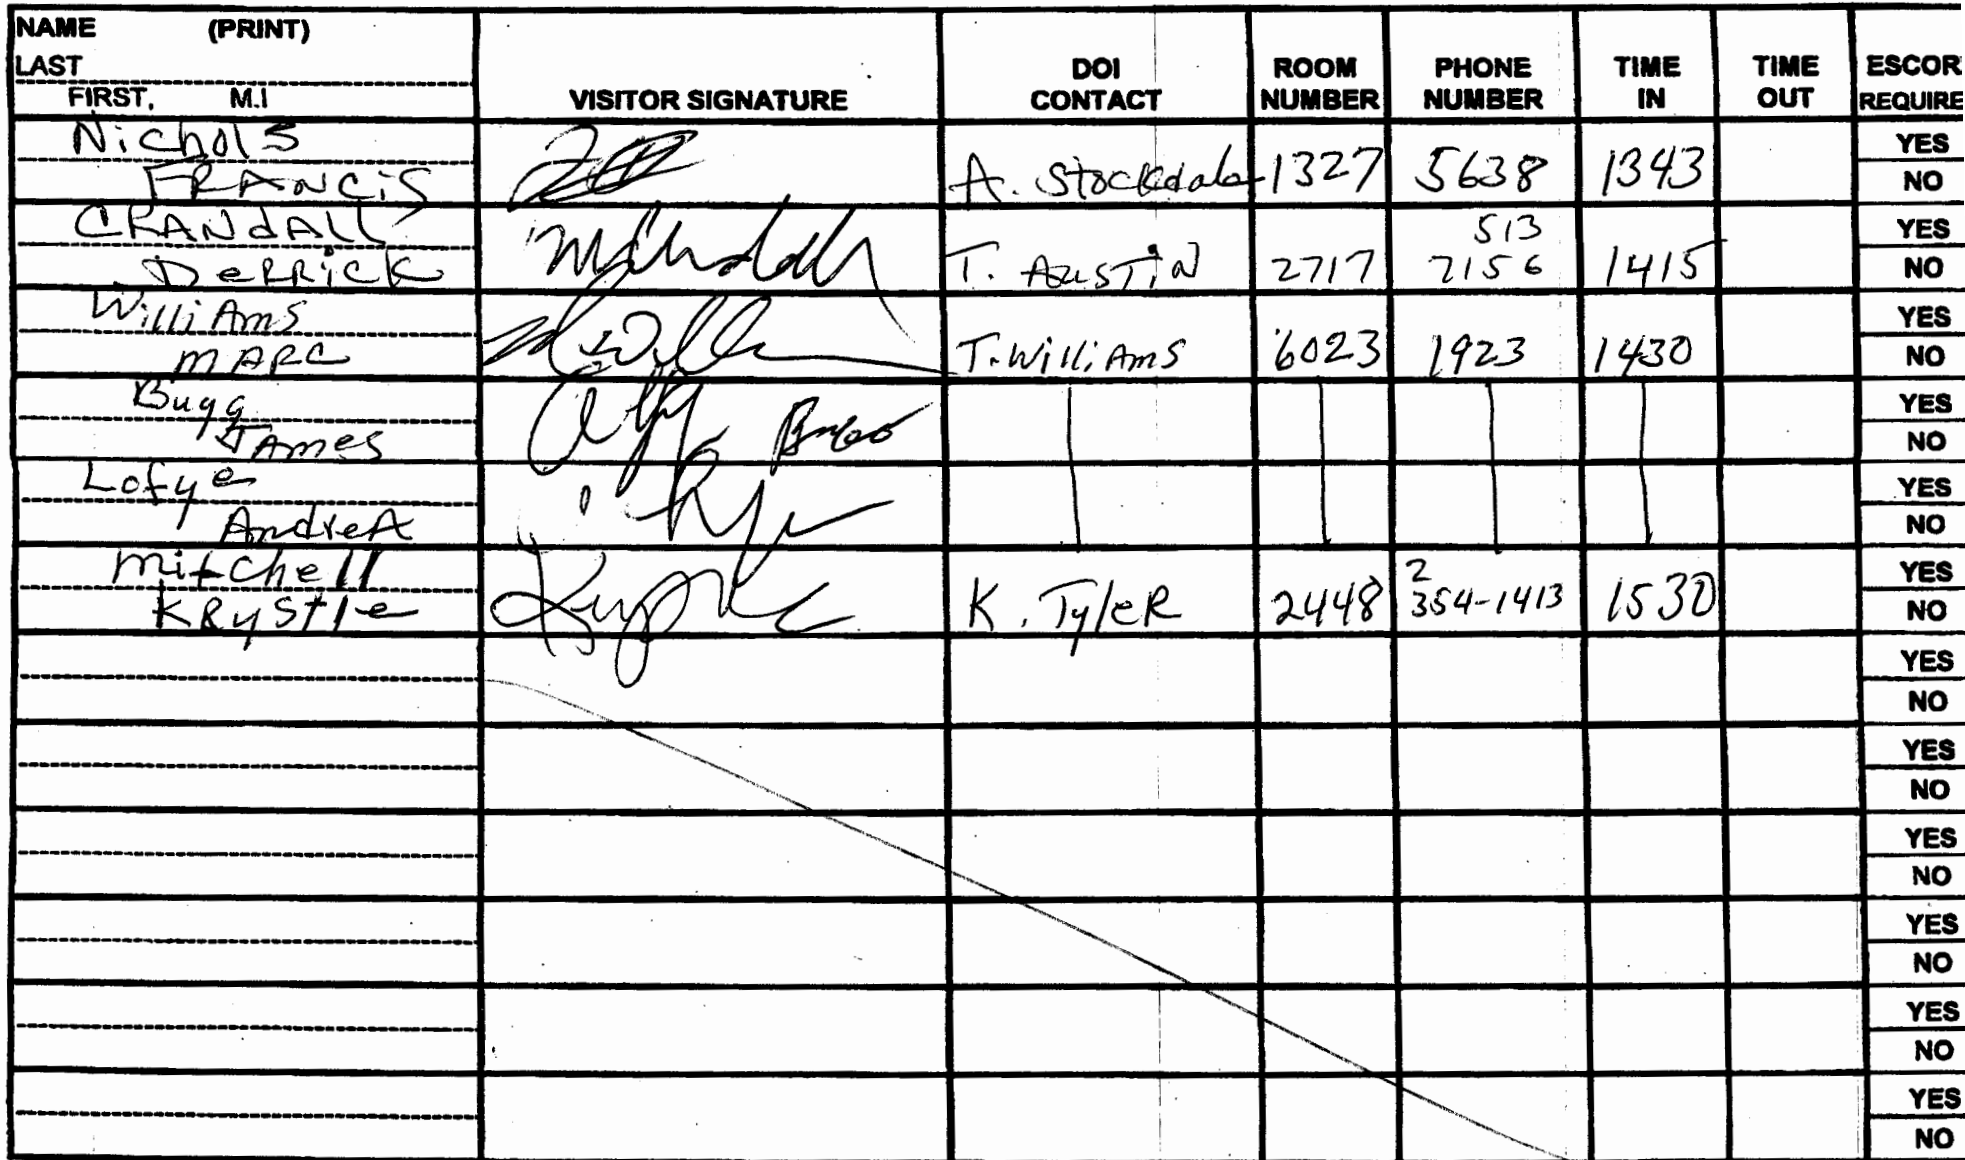 NAME (PRINT)
LAST
FIRST, M.I
VISITOR SIGNATURE
DOI CONTACT
ROOM NUMBER
PHONE NUMBER
TIME IN
TIME OUT
ESCOR
REQUIRE
Nichols
FRANCiS
A. Stockdale 1327 5638 1343
YES
NO
CRANdALL
DeRRicK
T. AuSTiN 2717 513 7156 1415
YES
NO
WilliAmS
mARC
T. WilliAmS 6023 1923 1430
YES
NO
Bugg
JAmes
YES
NO
Lofye
AndreA
YES
NO
mitchell
KRyStle
K. TyleR 2448 2 354-1413 1530
YES
NO
YES
NO
YES
NO
YES
NO
YES
NO
YES
NO
YES
NO